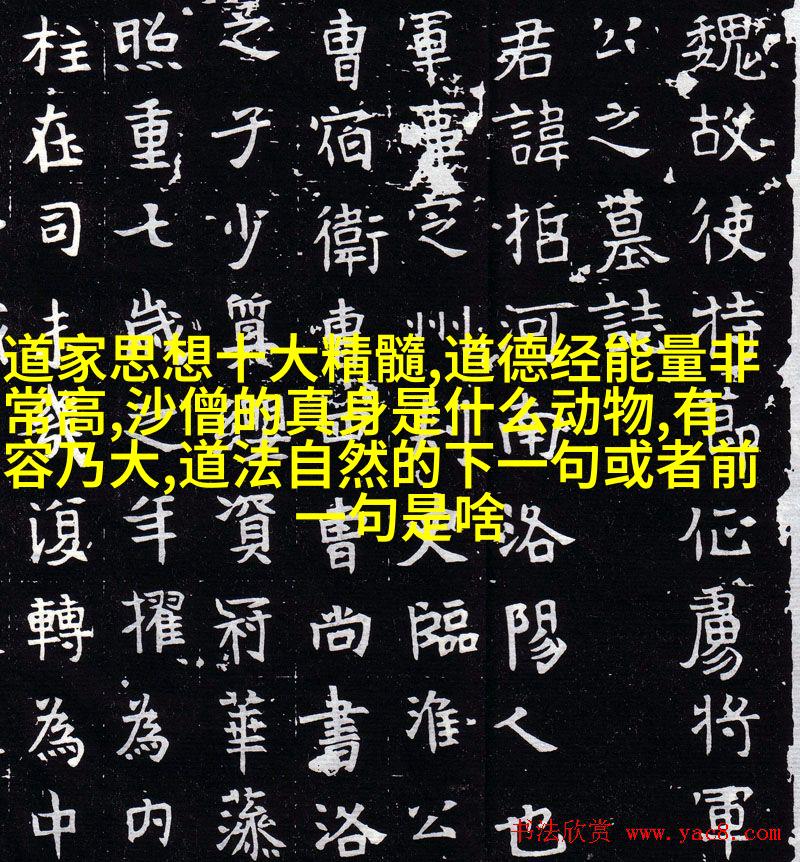 道家思想十大精髓,道德经能量非
常高,沙僧的真身是什么动物,有
容乃大,道法自然的下一句或者前
一句是啥
魏故使持節征虜將軍
公之墓誌
君諱河南洛陽人也
軍事定州刺史臨淮公
曹宿衛曹尚書洛
之子少質資冠華藻
照重七歲之年擢為內
柱在司復轉為中
书法欣赏 www.yac8.com